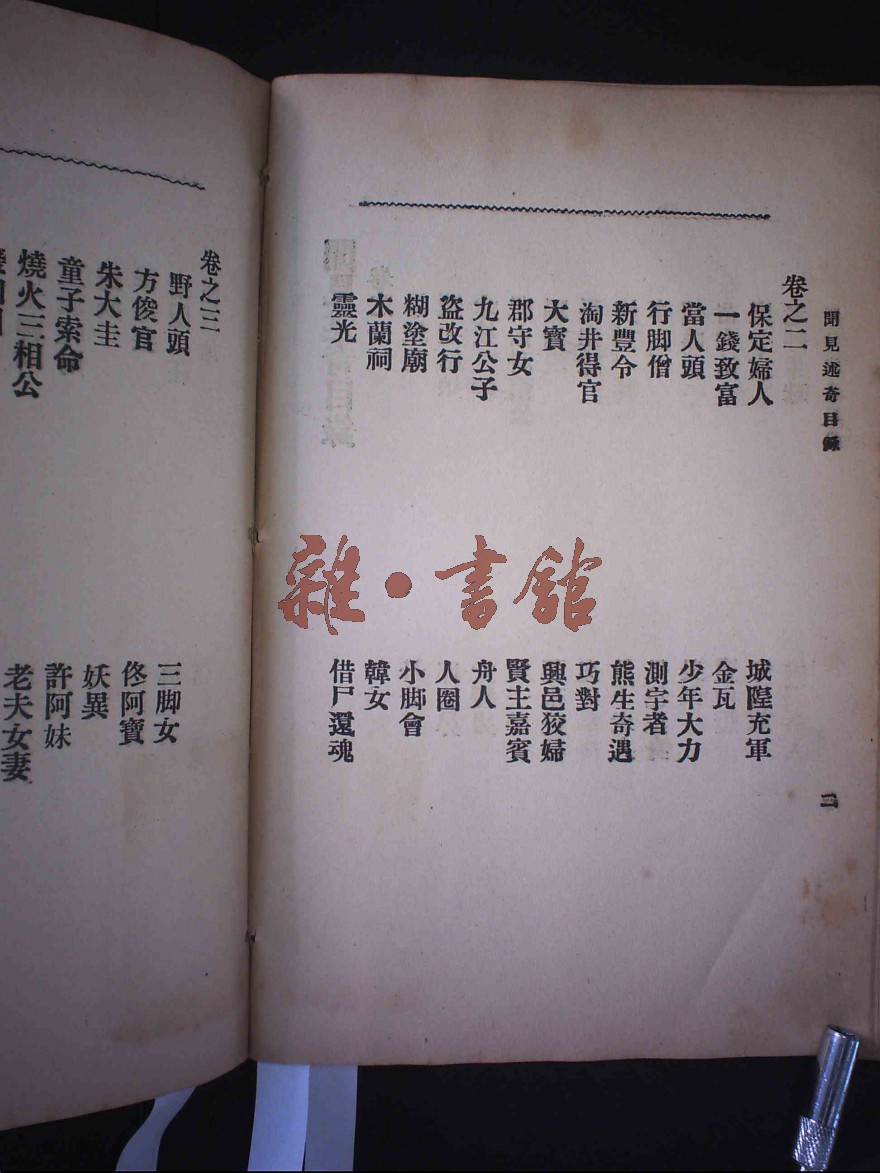 聞見述奇目錄
二
卷之二
保定婦人
城隍充軍
一錢致富
金瓦
當人頭
少年大力
行脚僧
測字者
新豐令
熊生奇遇
淘井得官
巧對
大寶
興邑狡婦
郡守女
賢主嘉賓
九江公子
舟人
盜改行
人圈
糊塗廟
小脚會
木蘭祠
韓女
靈光
借尸還魂
卷之三
野人頭
三脚女
方俊官
佟阿寶
朱大圭
妖異
童子索命
許阿妹
燒火三相公
老夫女妻
雜·書館